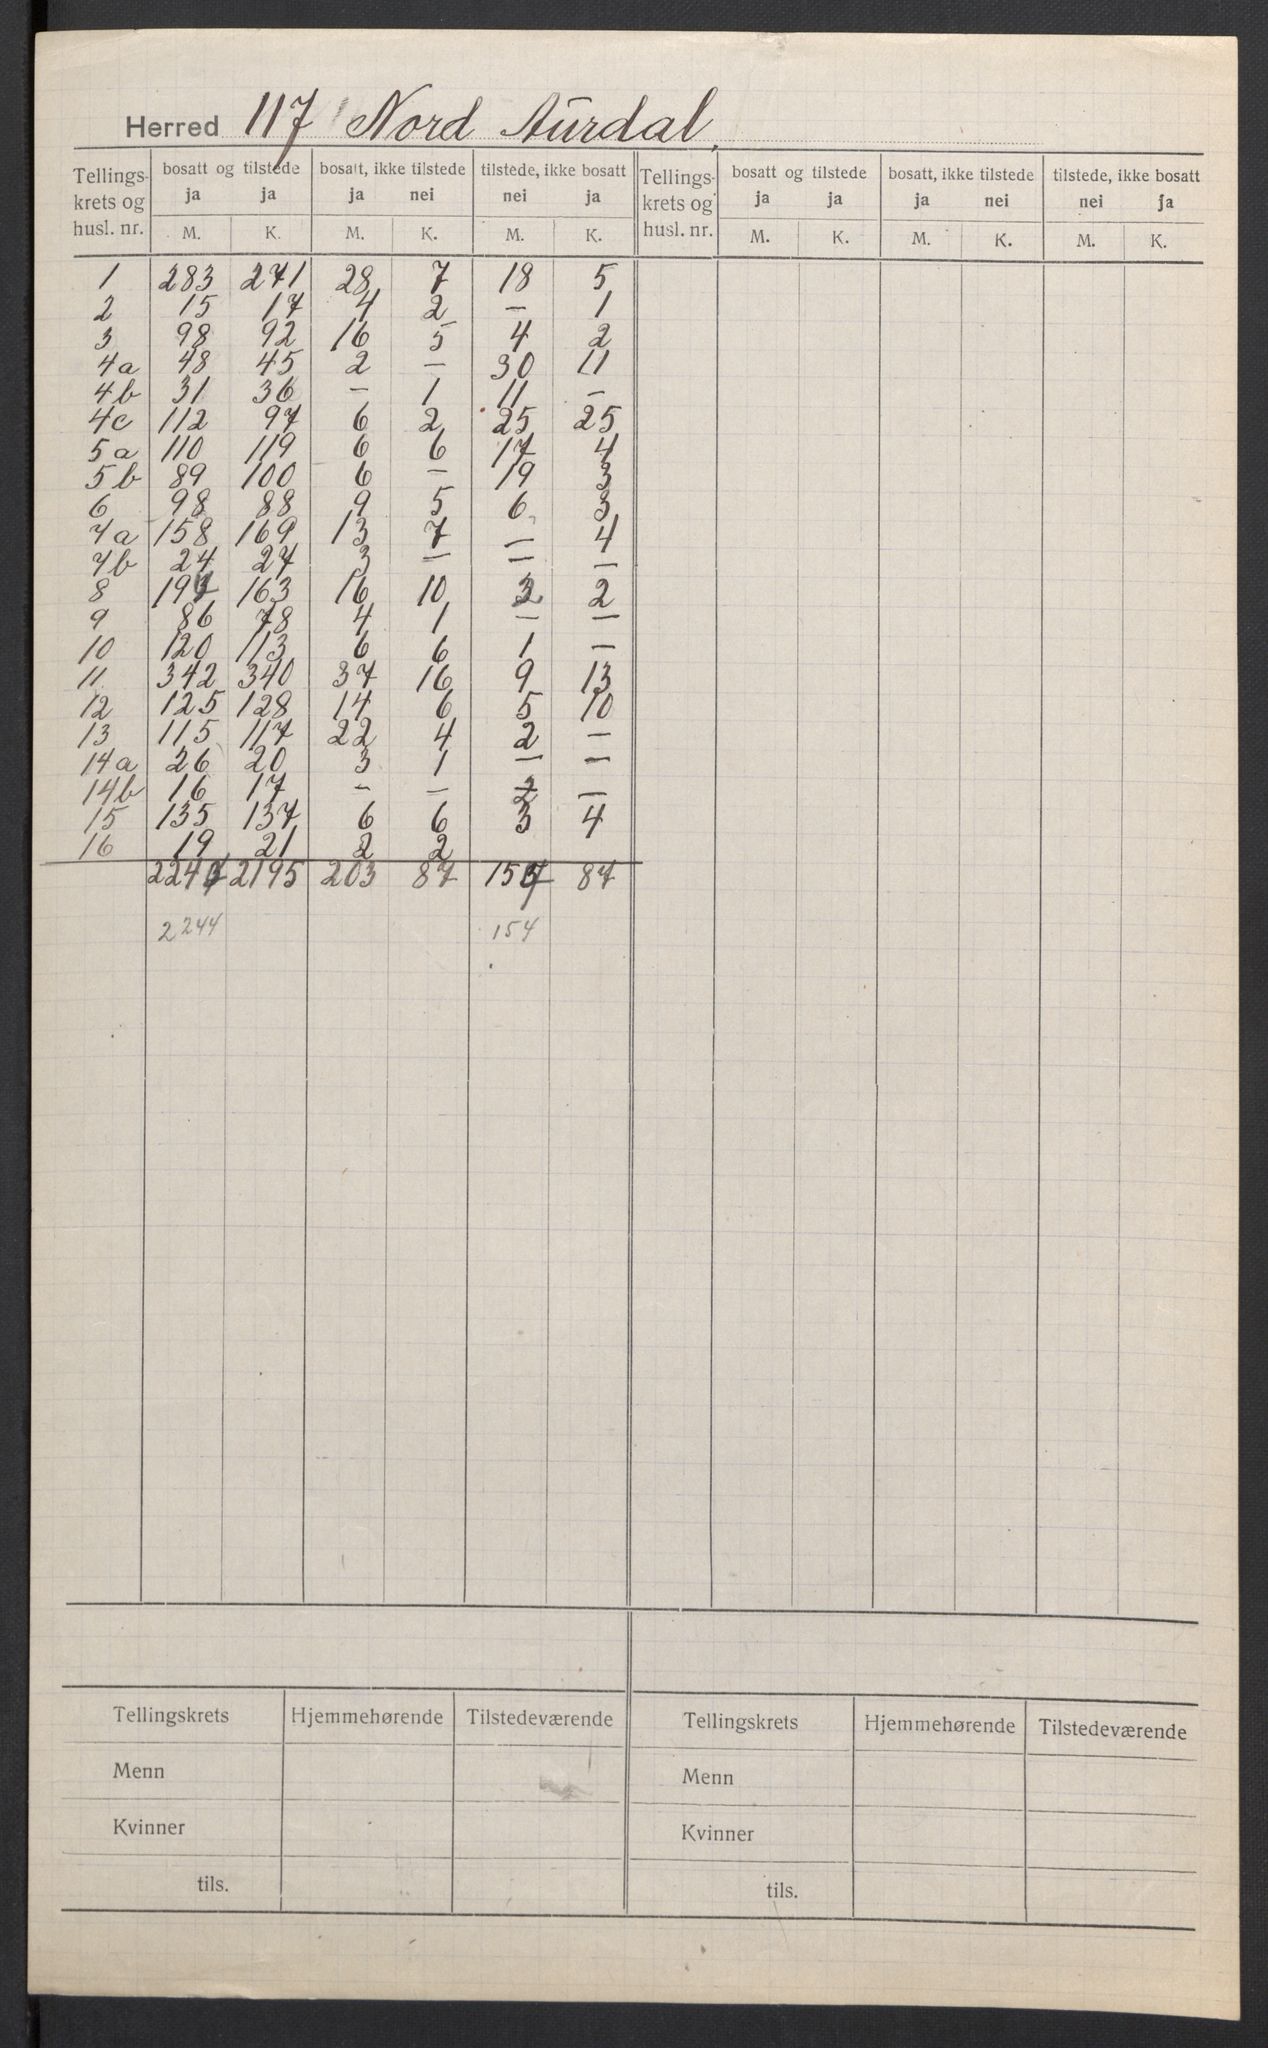 Herred 117 Nord Aurdal.
Tellings-krets og husl. nr. | bosatt og tilstede ja ja | bosatt, ikke tilstede ja nei | tilstede, ikke bosatt nei ja | Tellings-krets og husl. nr. | bosatt og tilstede ja ja | bosatt, ikke tilstede ja nei | tilstede, ikke bosatt nei ja
M. K. M. K. M. K. M. K. M. K. M. K.
1 283 271 28 7 18 5
2 15 17 4 2 — 1
3 98 92 16 5 4 2
4a 48 45 2 — 30 11
4b 31 36 — 1 11 —
4c 112 97 6 2 25 25
5a 110 119 6 6 17 4
5b 89 100 6 — 19 3
6 98 88 9 5 6 3
7a 158 169 13 7 — 4
7b 24 27 3 — — —
8 194 163 16 10 2 2
9 86 78 4 1 — —
10 120 113 6 6 1 —
11 342 340 37 16 9 13
12 125 128 14 6 5 10
13 115 117 22 4 2 —
14a 26 20 3 1 — —
14b 16 17 — — 2 —
15 135 137 6 6 3 4
16 19 21 2 2
2247 2195 203 87 157 87
2244 154
Tellingskrets Hjemmehørende Tilstedeværende Tellingskrets Hjemmehørende Tilstedeværende
Menn Menn
Kvinner Kvinner
tils. tils.